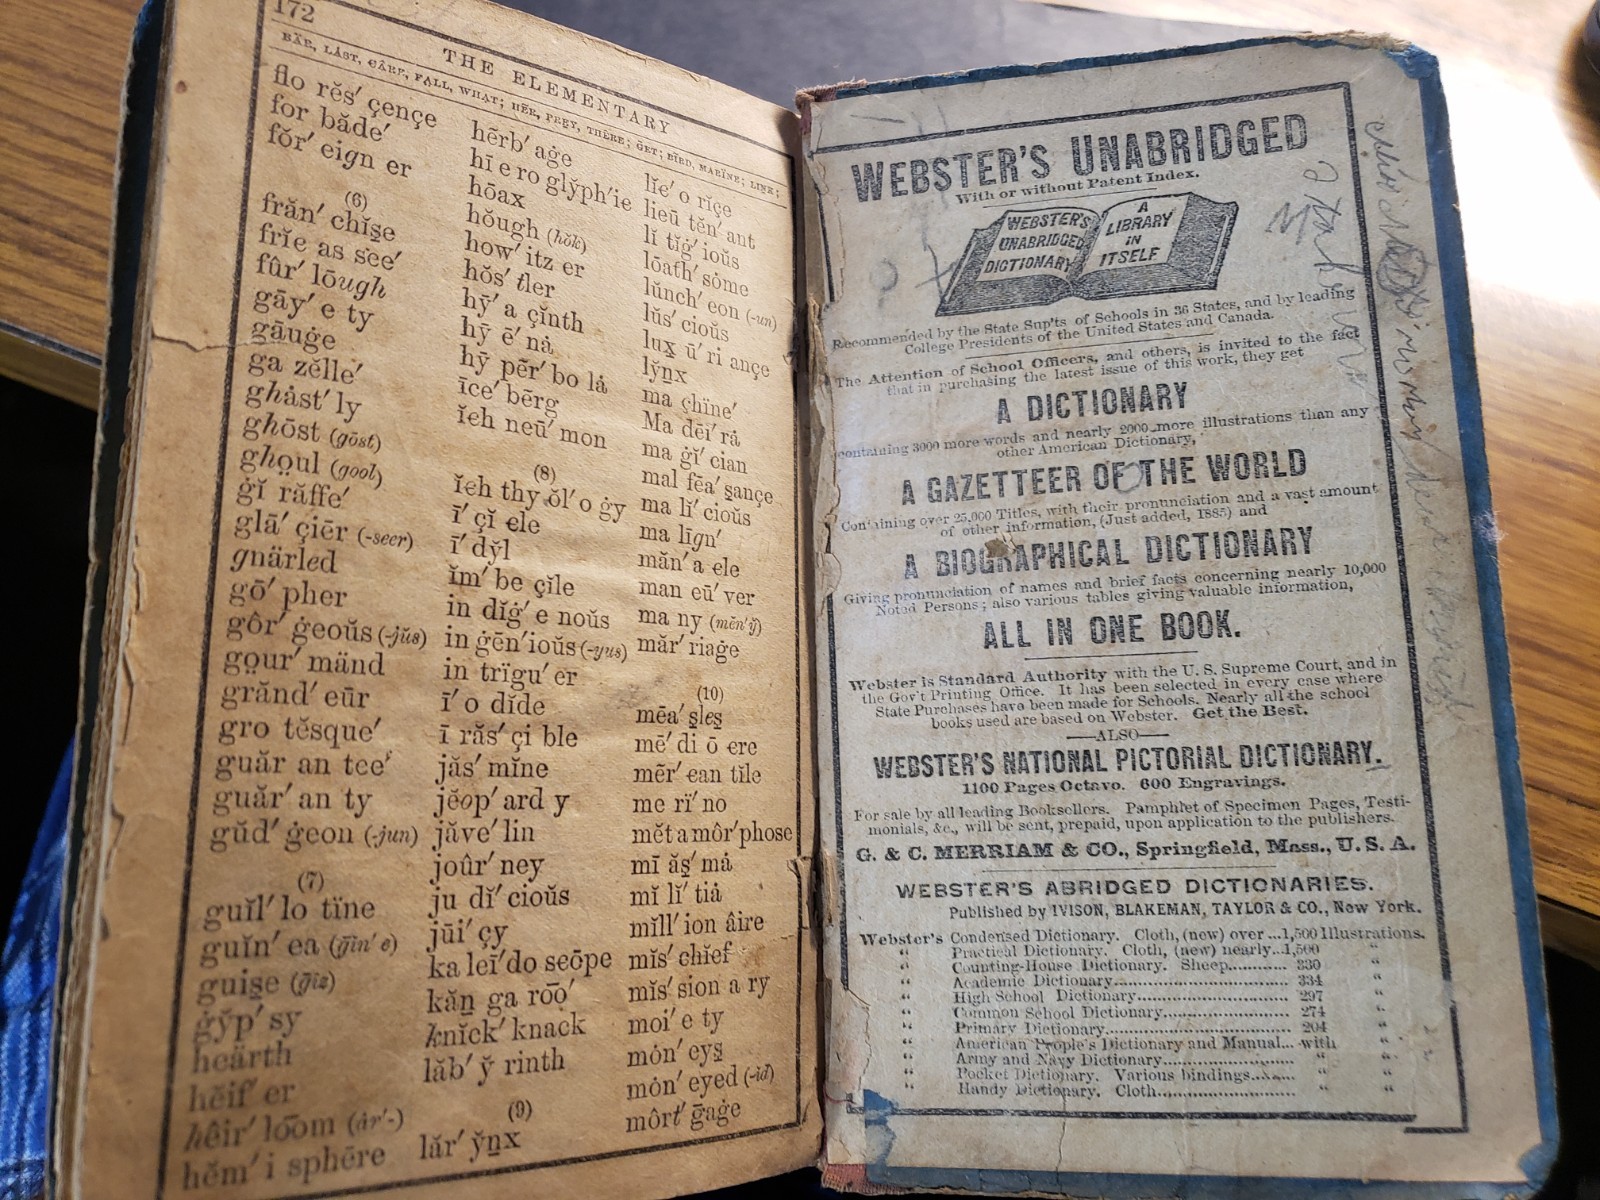 172
THE ELEMENTARY
BÄR, LÁST, CÂRE, FALL, WHAT; HĒR, PREY, THÊRE; ĞET; BĪRD, MARÏNE; LINK;
flo rĕs′ çençe
for băde′
fŏr′ eign er
(6)
frăn′ chīşe
frïe as see′
fûr′ lōugh
gāy′ e ty
gāuġe
ga zĕlle′
ghȧst′ ly
ghōst (gōst)
ghoul (gool)
ġĭ răffe′
glā′ çiēr (-seer)
gnärled
gō′ pher
gôr′ ġeoŭs (-jŭs)
gour′ mänd
grănd′ eūr
gro tĕsque′
guăr an tee′
guăr′ an ty
gŭd′ ġeon (-jun)
(7)
guĭl′ lo tïne
guĭn′ ea (ḡĭn′ e)
guişe (ḡīz)
ġy̆p′ sy
heärth
hĕif′ er
hêir′ lōōm (âr′-)
hĕm′ i sphēre
hērb′ aġe
hī e ro gly̆ph′ ic
hōax
hŏugh (hŏk)
how′ itz er
hŏs′ tler
hȳ′ a çĭnth
hȳ ē′ nȧ
hȳ pēr′ bo lȧ
īce′ bērg
ĭch neū′ mon
(8)
ĭch thy ŏl′ o ġy
ī′ çĭ cle
ī′ dy̆l
ĭm′ be çĭle
in dĭġ′ e noŭs
in ġēn′ ioŭs (-yus)
in trïgu′ er
ī′ o dĭde
ī răs′ çi ble
jăs′ mĭne
jĕop′ ard y
jăve′ lin
joûr′ ney
ju dĭ′ cioŭs
jūi′ çy
ka leī′ do scōpe
kăṉ ga rōō′
knĭck′ knack
lăb′ y̆ rinth
(9)
lăr′ y̆ṉx
lïc′ o rĭçe
lieū tĕn′ ant
lĭ tĭġ′ ioŭs
lōath′ sȯme
lŭnch′ eon (-un)
lŭs′ cioŭs
lux ū′ ri ançe
ly̆ṉx
ma çhïne′
Ma dēi′ rȧ
ma ġĭ′ cian
mal fēa′ şançe
ma lĭ′ cioŭs
ma līgn′
măn′ a cle
man eū′ ver
ma ny (mĕn′ y̆)
măr′ riaġe
(10)
mēa′ şleş
mē′ di ō cre
mēr′ can tĭle
me rï′ no
mĕt a môr′phose
mī ăş′ mȧ
mĭ lĭ′ tiȧ
mĭll′ ion âire
mĭs′ chĭef
mĭs′ sion a ry
moi′ e ty
mȯn′ eyş
mȯn′ eyed (-id)
môrt′ ḡaġe
WEBSTER'S UNABRIDGED
With or without Patent Index.
WEBSTER'S UNABRIDGED DICTIONARY
A LIBRARY IN ITSELF
Recommended by the State Sup'ts of Schools in 36 States, and by leading
College Presidents of the United States and Canada.
The Attention of School Officers, and others, is invited to the fact
that in purchasing the latest issue of this work, they get
A DICTIONARY
containing 3000 more words and nearly 2000 more illustrations than any
other American Dictionary,
A GAZETTEER OF THE WORLD
Containing over 25,000 Titles, with their pronunciation and a vast amount
of other information, (Just added, 1885) and
A BIOGRAPHICAL DICTIONARY
Giving pronunciation of names and brief facts concerning nearly 10,000
Noted Persons; also various tables giving valuable information,
ALL IN ONE BOOK.
Webster is Standard Authority with the U. S. Supreme Court, and in
the Gov't Printing Office. It has been selected in every case where
State Purchases have been made for Schools. Nearly all the school
books used are based on Webster. Get the Best.
—ALSO—
WEBSTER'S NATIONAL PICTORIAL DICTIONARY.
1100 Pages Octavo. 600 Engravings.
For sale by all leading Booksellers. Pamphlet of Specimen Pages, Testi-
monials, &c., will be sent, prepaid, upon application to the publishers.
G. & C. MERRIAM & CO., Springfield, Mass., U. S. A.
WEBSTER'S ABRIDGED DICTIONARIES.
Published by IVISON, BLAKEMAN, TAYLOR & CO., New York.
Webster's Condensed Dictionary. Cloth, (new) over ...1,500 Illustrations.
" Practical Dictionary. Cloth, (new) nearly...1,500 "
" Counting-House Dictionary. Sheep........... 330 "
" Academic Dictionary.............................. 334 "
" High School Dictionary.......................... 297 "
" Common School Dictionary..................... 274 "
" Primary Dictionary................................ 204 "
" American People's Dictionary and Manual... with "
" Army and Navy Dictionary...................... " "
" Pocket Dictionary. Various bindings........ " "
" Handy Dictionary. Cloth......................... " "